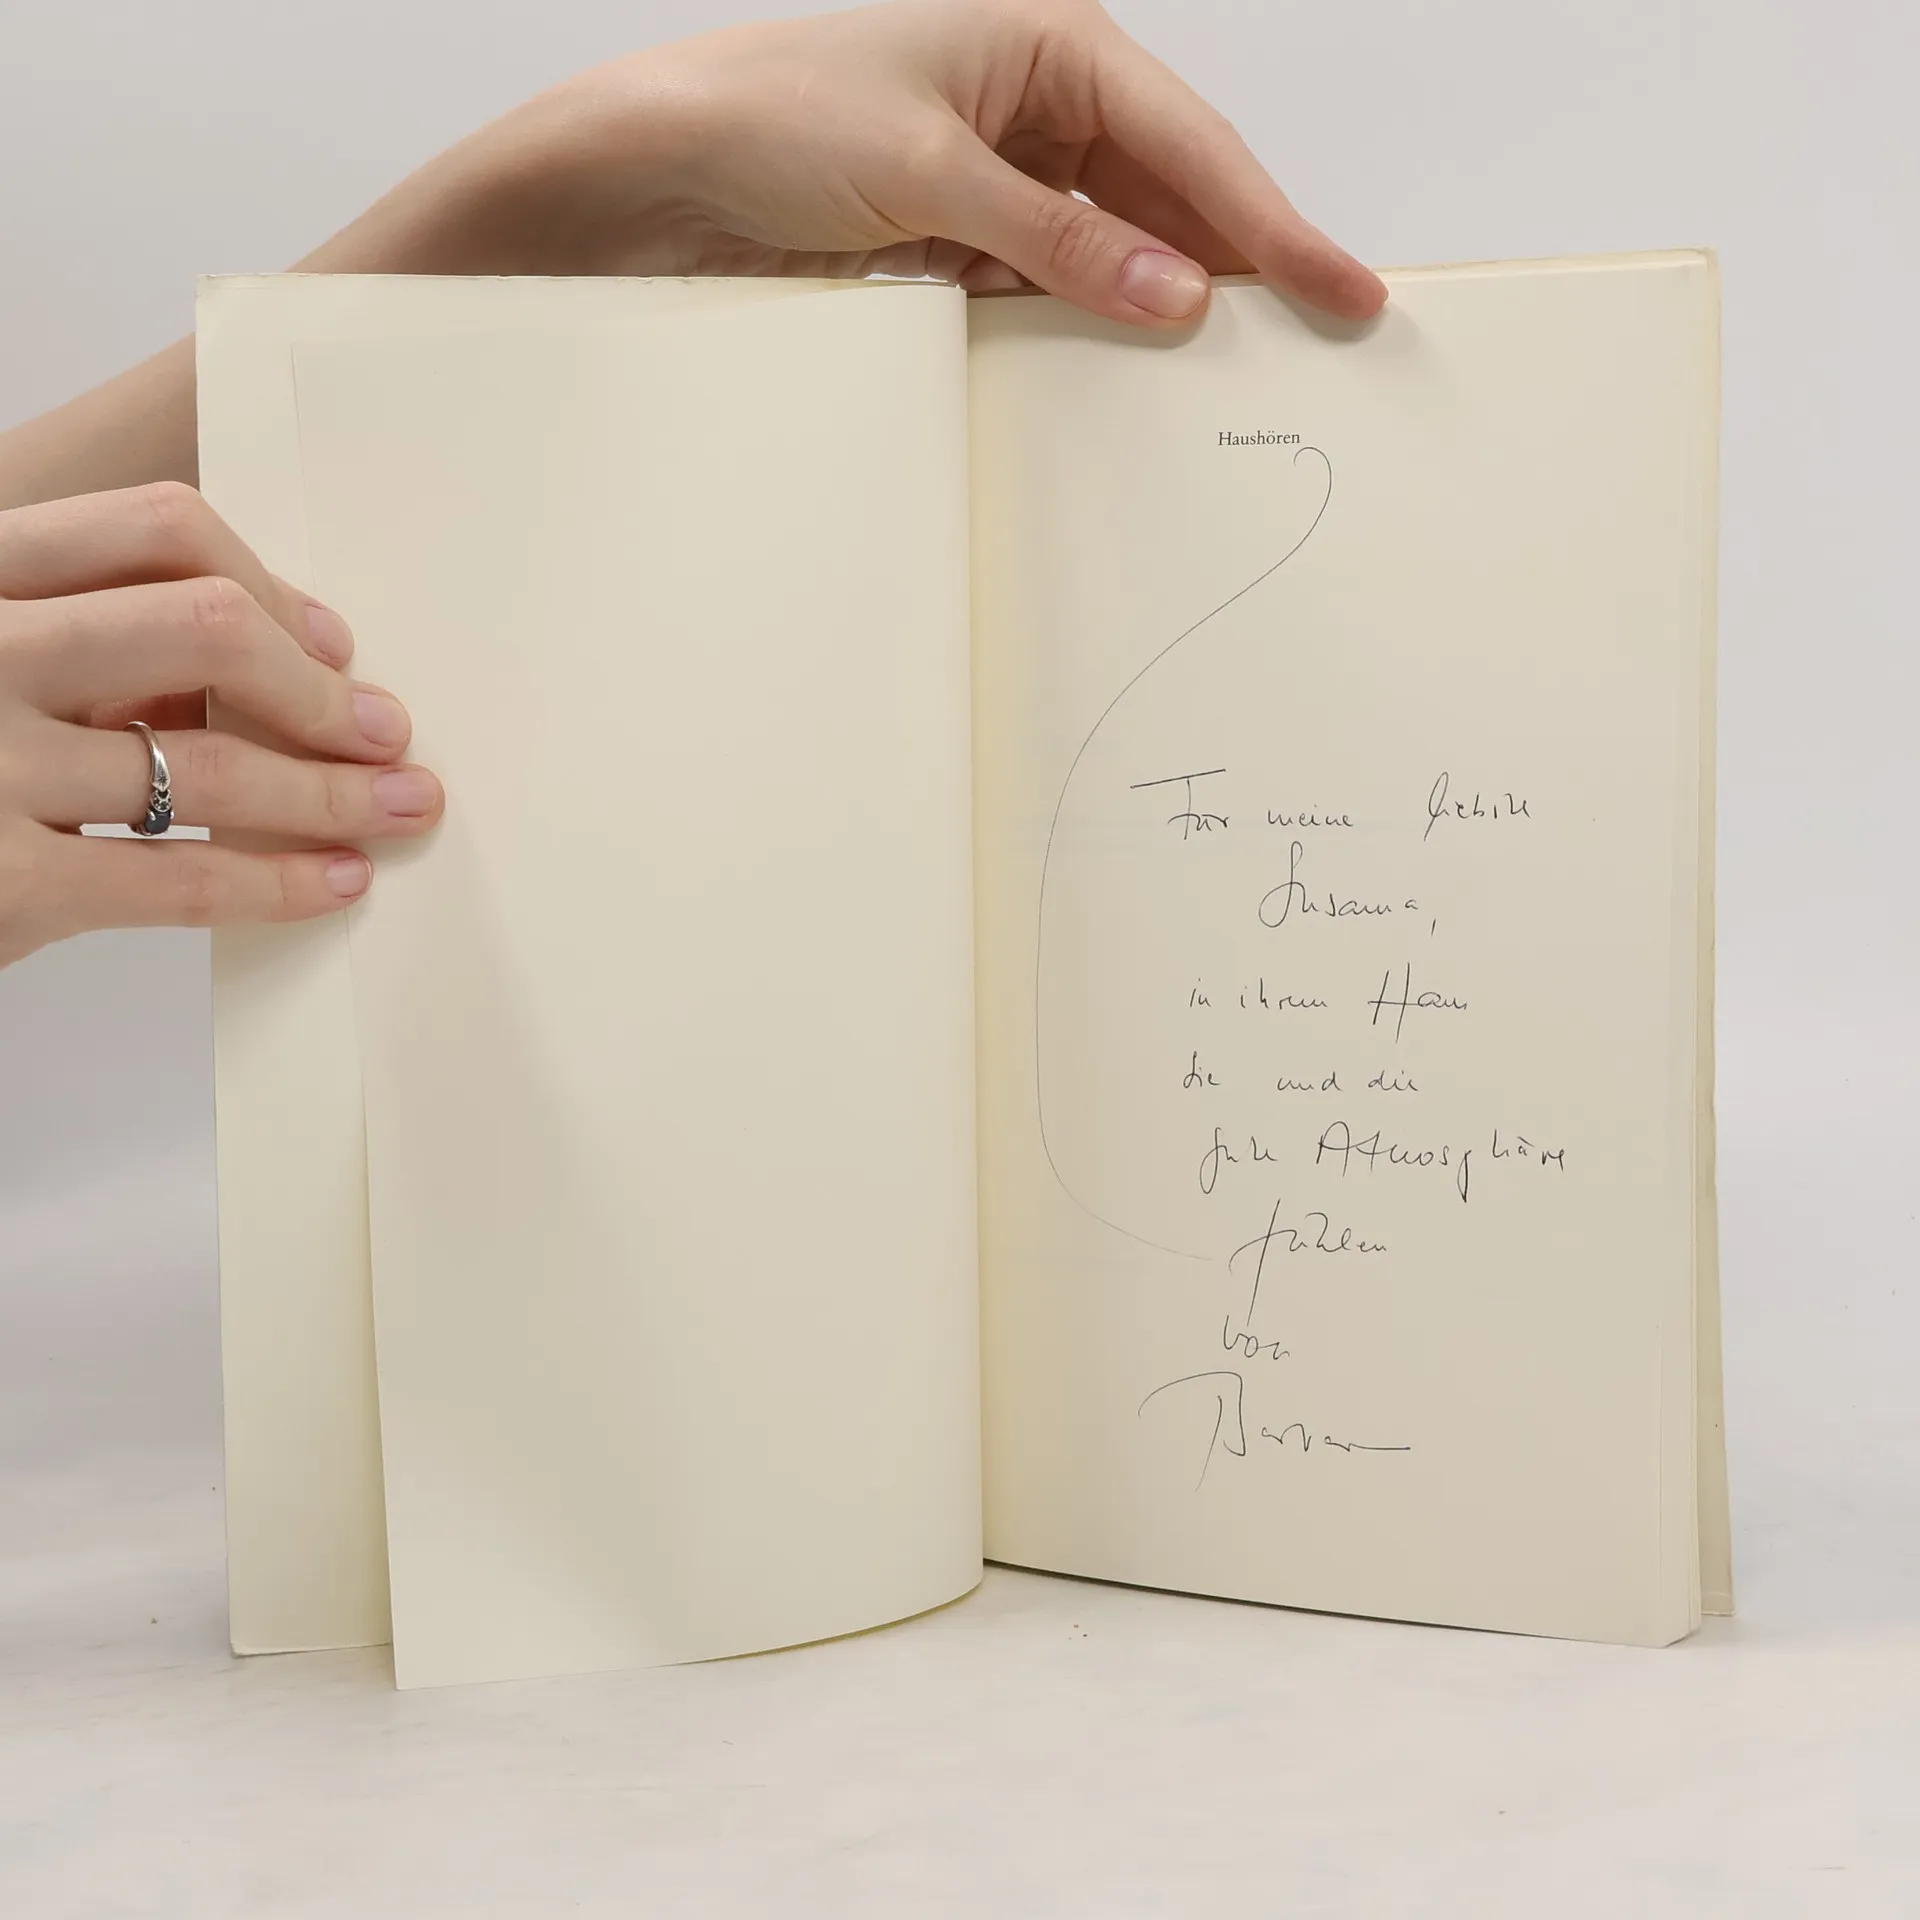 Haushören
Für meine liebste
Susanna,
in ihrem Haus
sie und die
gute Atmosphäre
fühlen
von
Barbara